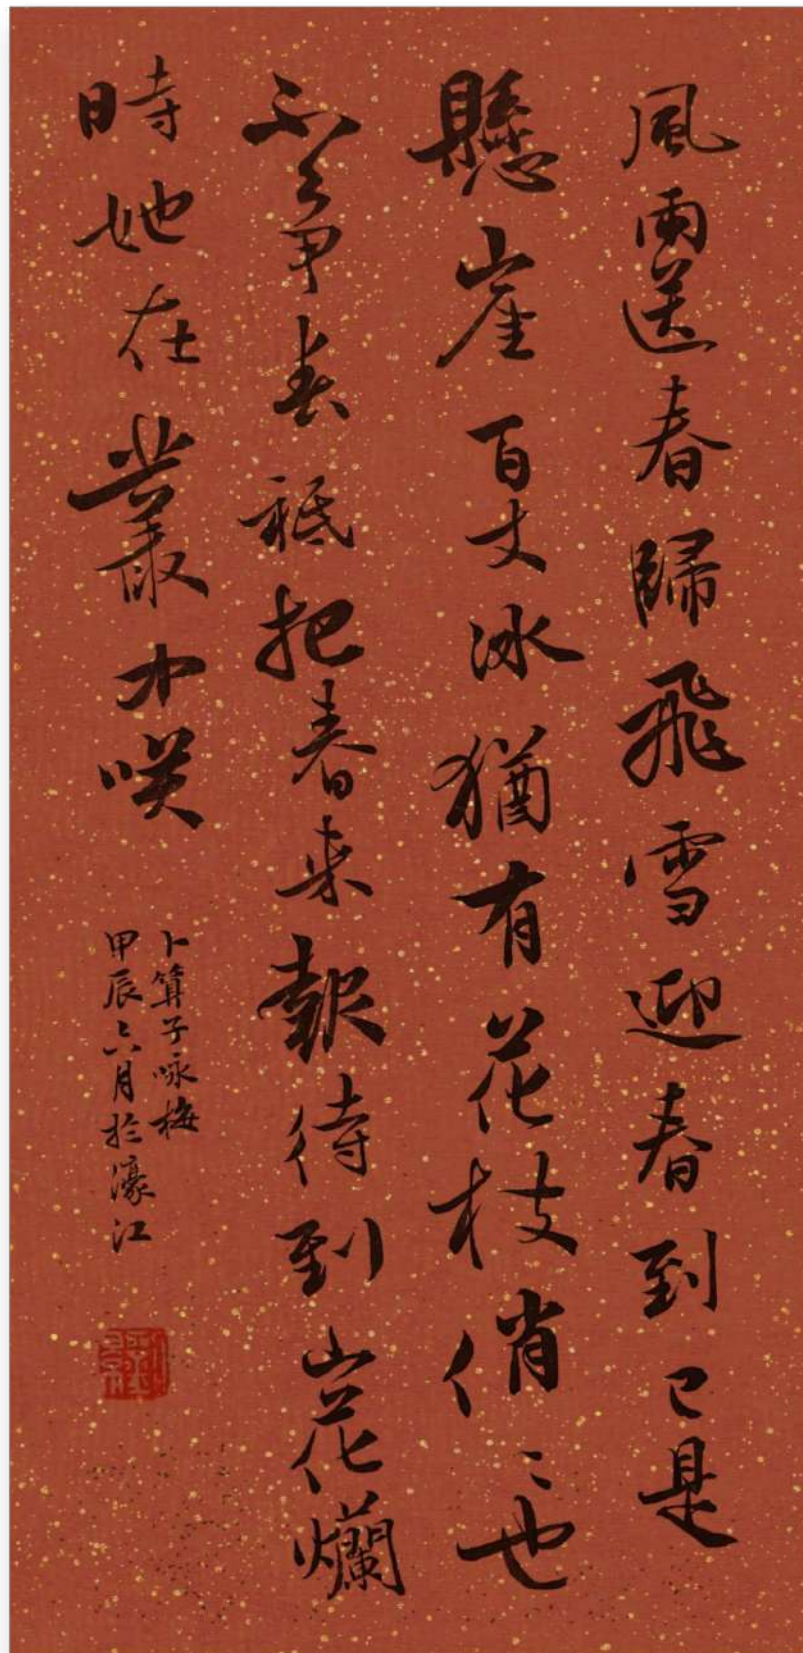 風雨送春歸飛雪迎春到已是
懸崖百丈冰猶有花枝俏〻也
不爭春祗把春来報待到山花爛
時她在叢中咲
卜算子咏梅
甲辰六月於濠江